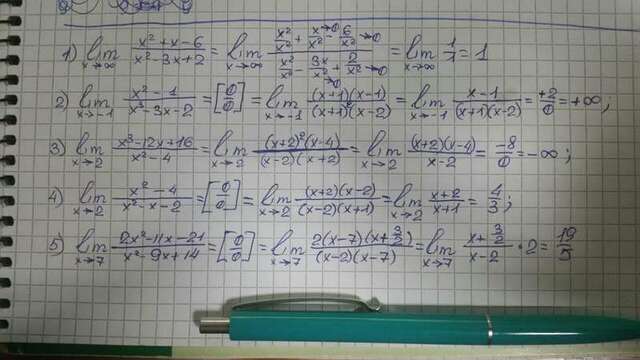 1) lim x→∞ (x²+x-6)/(x²-3x+2) = lim x→∞ (x²/x² + x/x²→0 - 6/x²→0)/(x²/x² - 3x/x²→0 + 2/x²→0) = lim x→∞ 1/1 = 1
2) lim x→-1 (x²-1)/(x³-3x-2) = [0/0] = lim x→-1 ((x+1)(x-1))/((x+1)²(x-2)) = lim x→-1 (x-1)/((x+1)(x-2)) = +2/0 = +∞;
3) lim x→2 (x³-12x+16)/(x²-4) = lim x→2 ((x+2)²(x-4))/((x-2)(x+2)) = lim x→2 ((x+2)(x-4))/(x-2) = -8/0 = -∞;
4) lim x→2 (x²-4)/(x²-x-2) = [0/0] = lim x→2 ((x+2)(x-2))/((x-2)(x+1)) = lim x→2 (x+2)/(x+1) = 4/3;
5) lim x→7 (2x²-11x-21)/(x²-9x+14) = [0/0] = lim x→7 (2(x-7)(x+3/2))/((x-2)(x-7)) = lim x→7 (x+3/2)/(x-2) · 2 = 19/5